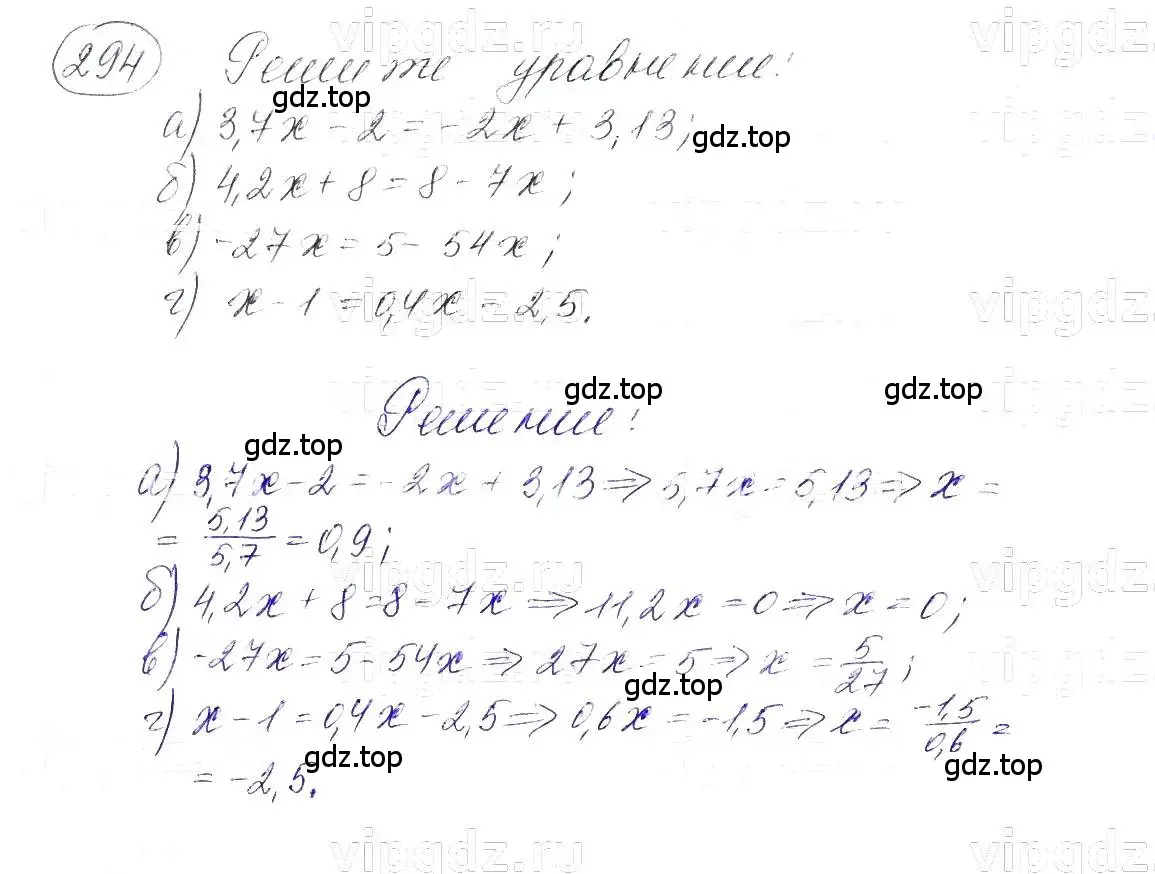 294 Решите уравнение:
а) 3,7x - 2 = -2x + 3,13;
б) 4,2x + 8 = 8 - 7x;
в) -27x = 5 - 54x;
г) x - 1 = 0,4x - 2,5.
Решение:
а) 3,7x - 2 = -2x + 3,13 ⇒ 5,7x = 5,13 ⇒ x =
= 5,13/5,7 = 0,9;
б) 4,2x + 8 = 8 - 7x ⇒ 11,2x = 0 ⇒ x = 0;
в) -27x = 5 - 54x ⇒ 27x = 5 ⇒ x = 5/27;
г) x - 1 = 0,4x - 2,5 ⇒ 0,6x = -1,5 ⇒ x = -1,5/0,6 =
= -2,5.
gdz.top
gdz.top
gdz.top
gdz.top
gdz.top
gdz.top
gdz.top
gdz.top
vipgdz.ru
vipgdz.ru
vipgdz.ru
vipgdz.ru